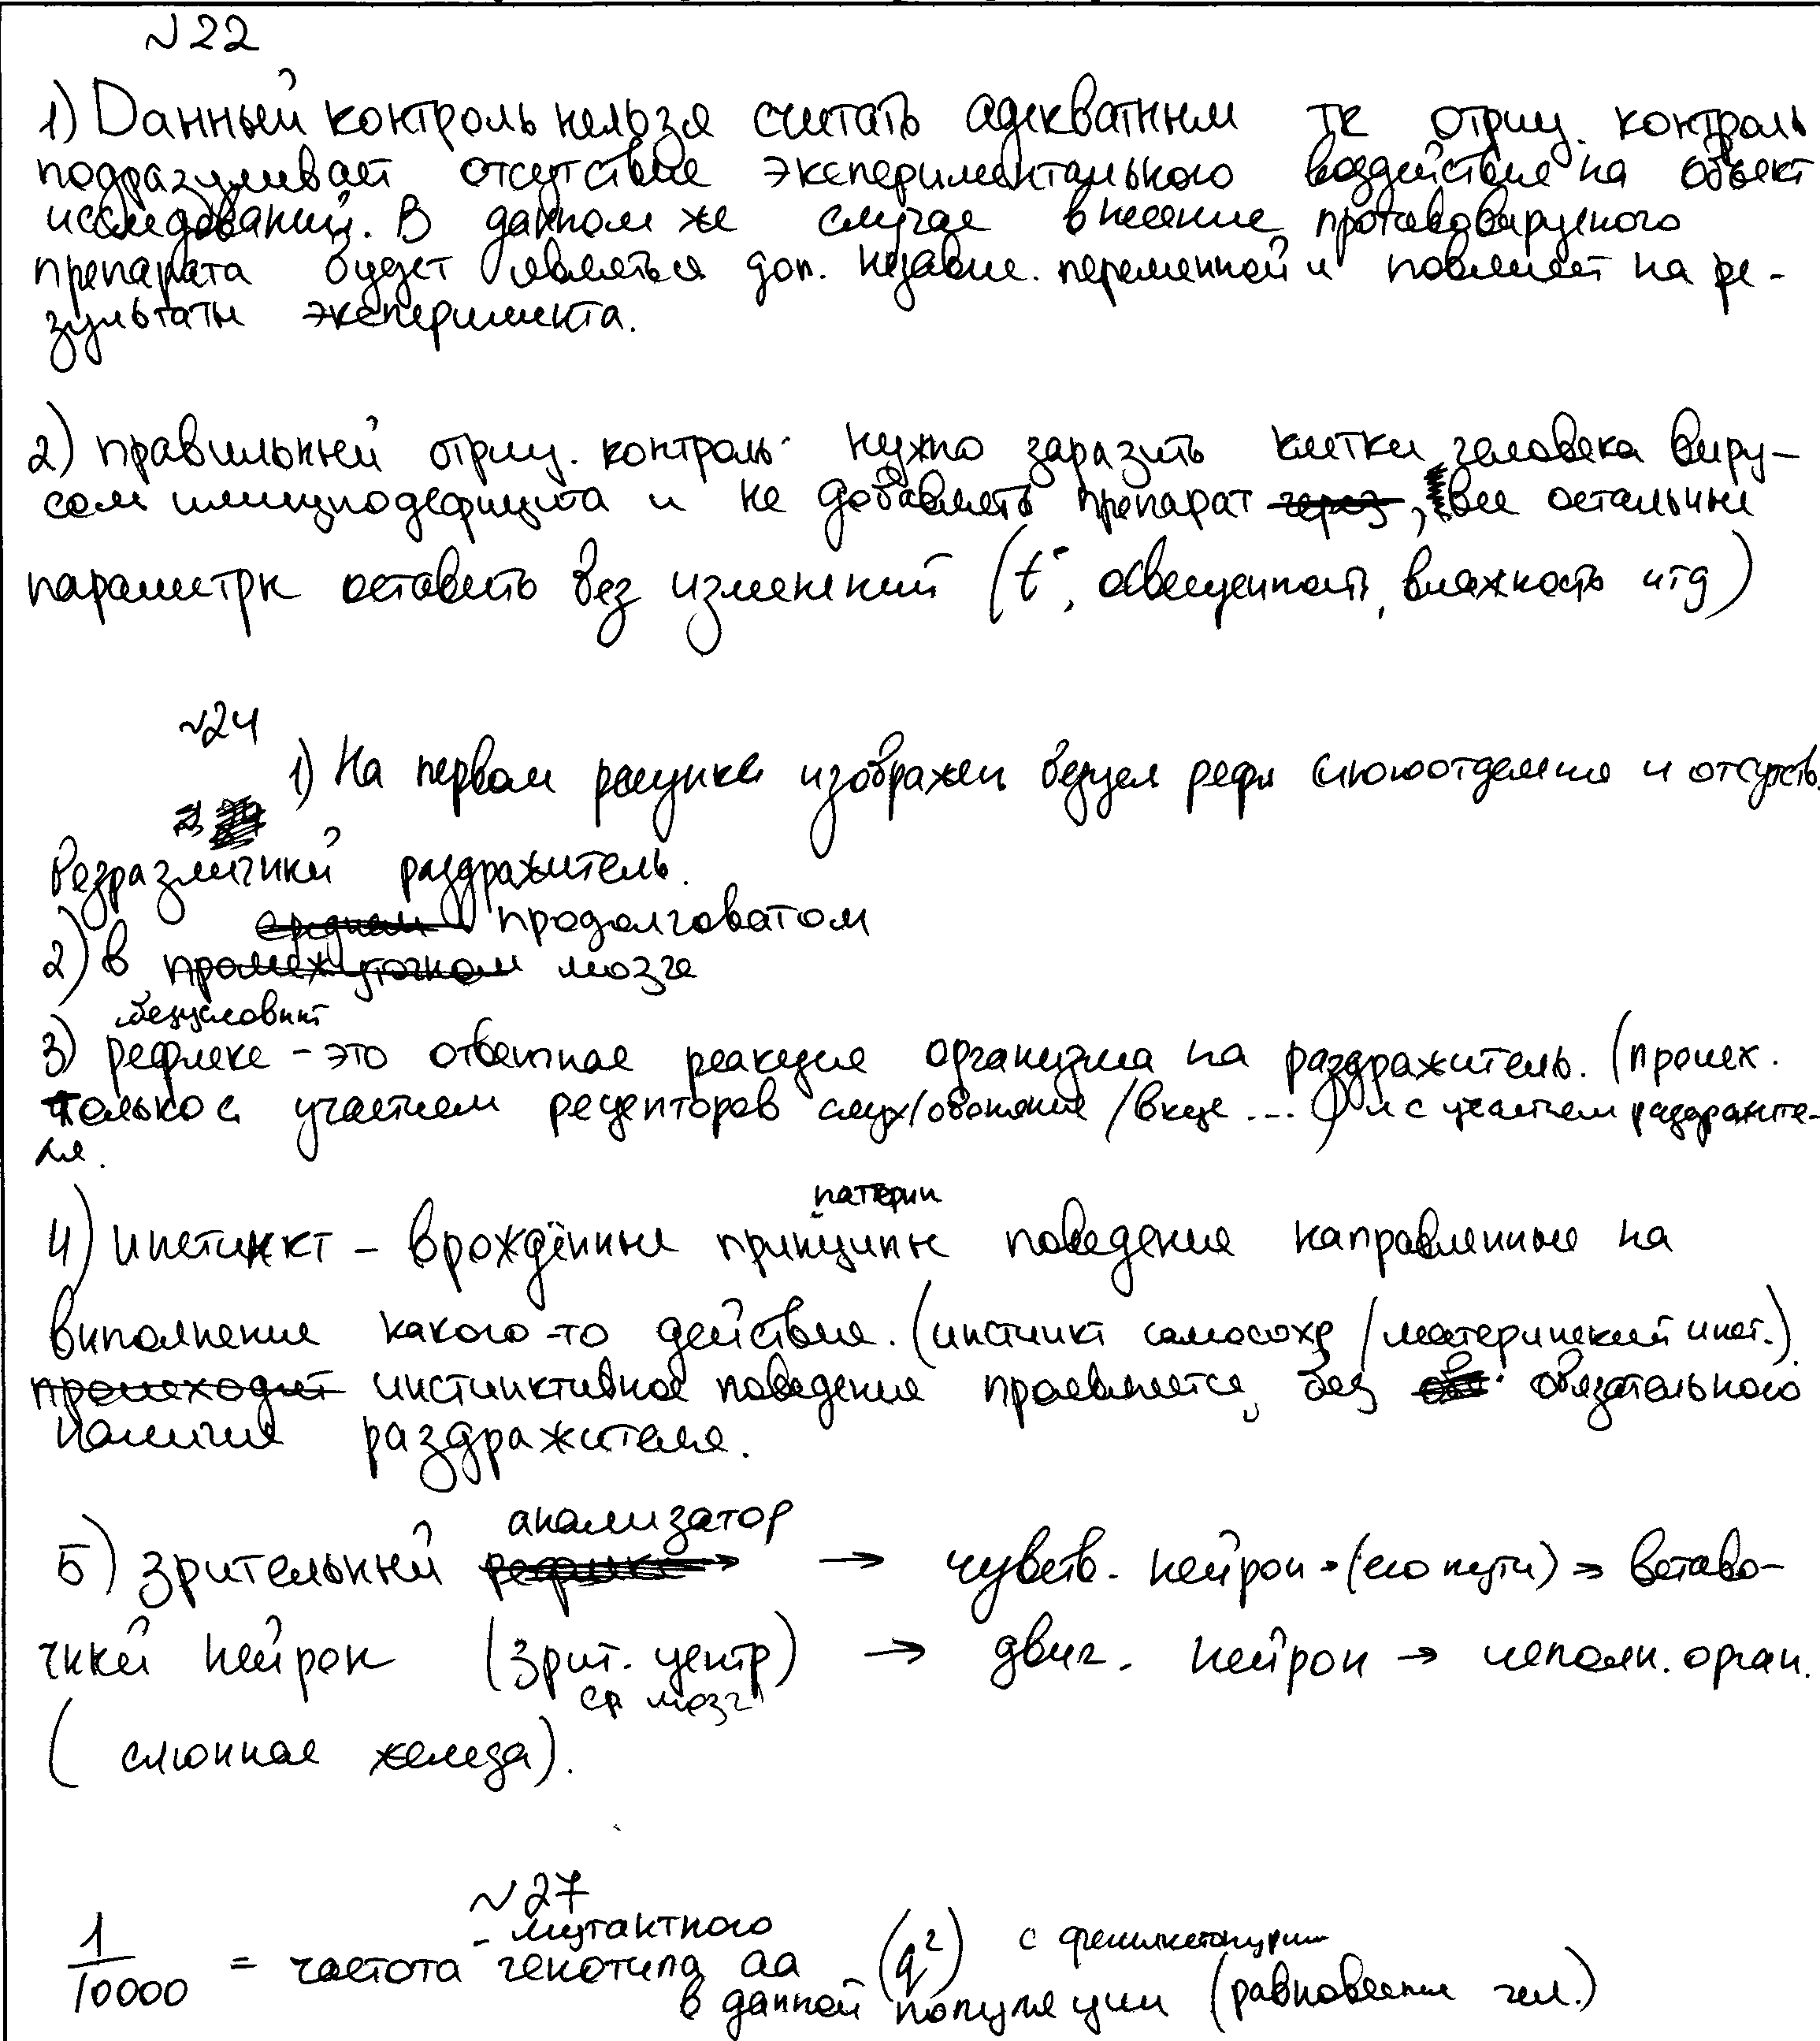 №22
1) Данный контроль нельзя считать адекватным тк отриц. контроль
подразумевает отсутствие экспериментального воздействия на объект
исследований. В данном же случае внесение противовирусного
препарата будет являться доп. независ. переменной и повлияет на ре-
зультаты эксперимента.
2) правильный отриц. контроль - нужно заразить клетки человека виру-
сом иммунодефицита и не добавлять препарат, все остальные
параметры оставить без изменений (t°, освещенность, влажность итд)
№24
1) На первом рисунке изображен безусл рефл слюноотделения и отсутств.
безразличный раздражитель.
2) в продолговатом
мозге
3) безусловный
рефлекс - это ответная реакция организма на раздражитель. (происх.
только с участием рецепторов слух/обоняние/вкус ...) и с участием раздражите-
ля.
паттерны
4) инстинкт - врождённые принципы поведения направленные на
выполнение какого-то действия. (инстинкт самосохр/материнский инст.)
инстинктивное поведение проявляется, без обязательного
наличия раздражителя.
анализатор
5) зрительный → чувств. нейрон - (его пути) → вставо-
чный нейрон (зрит. центр) → двиг. нейрон → исполн. орган.
ср мозг
(слюнная железа).
№27
- мутантного
1/10000 = частота генотипа аа (q²) с фенилкетонурией
в данной популяции (равновесия чел.)